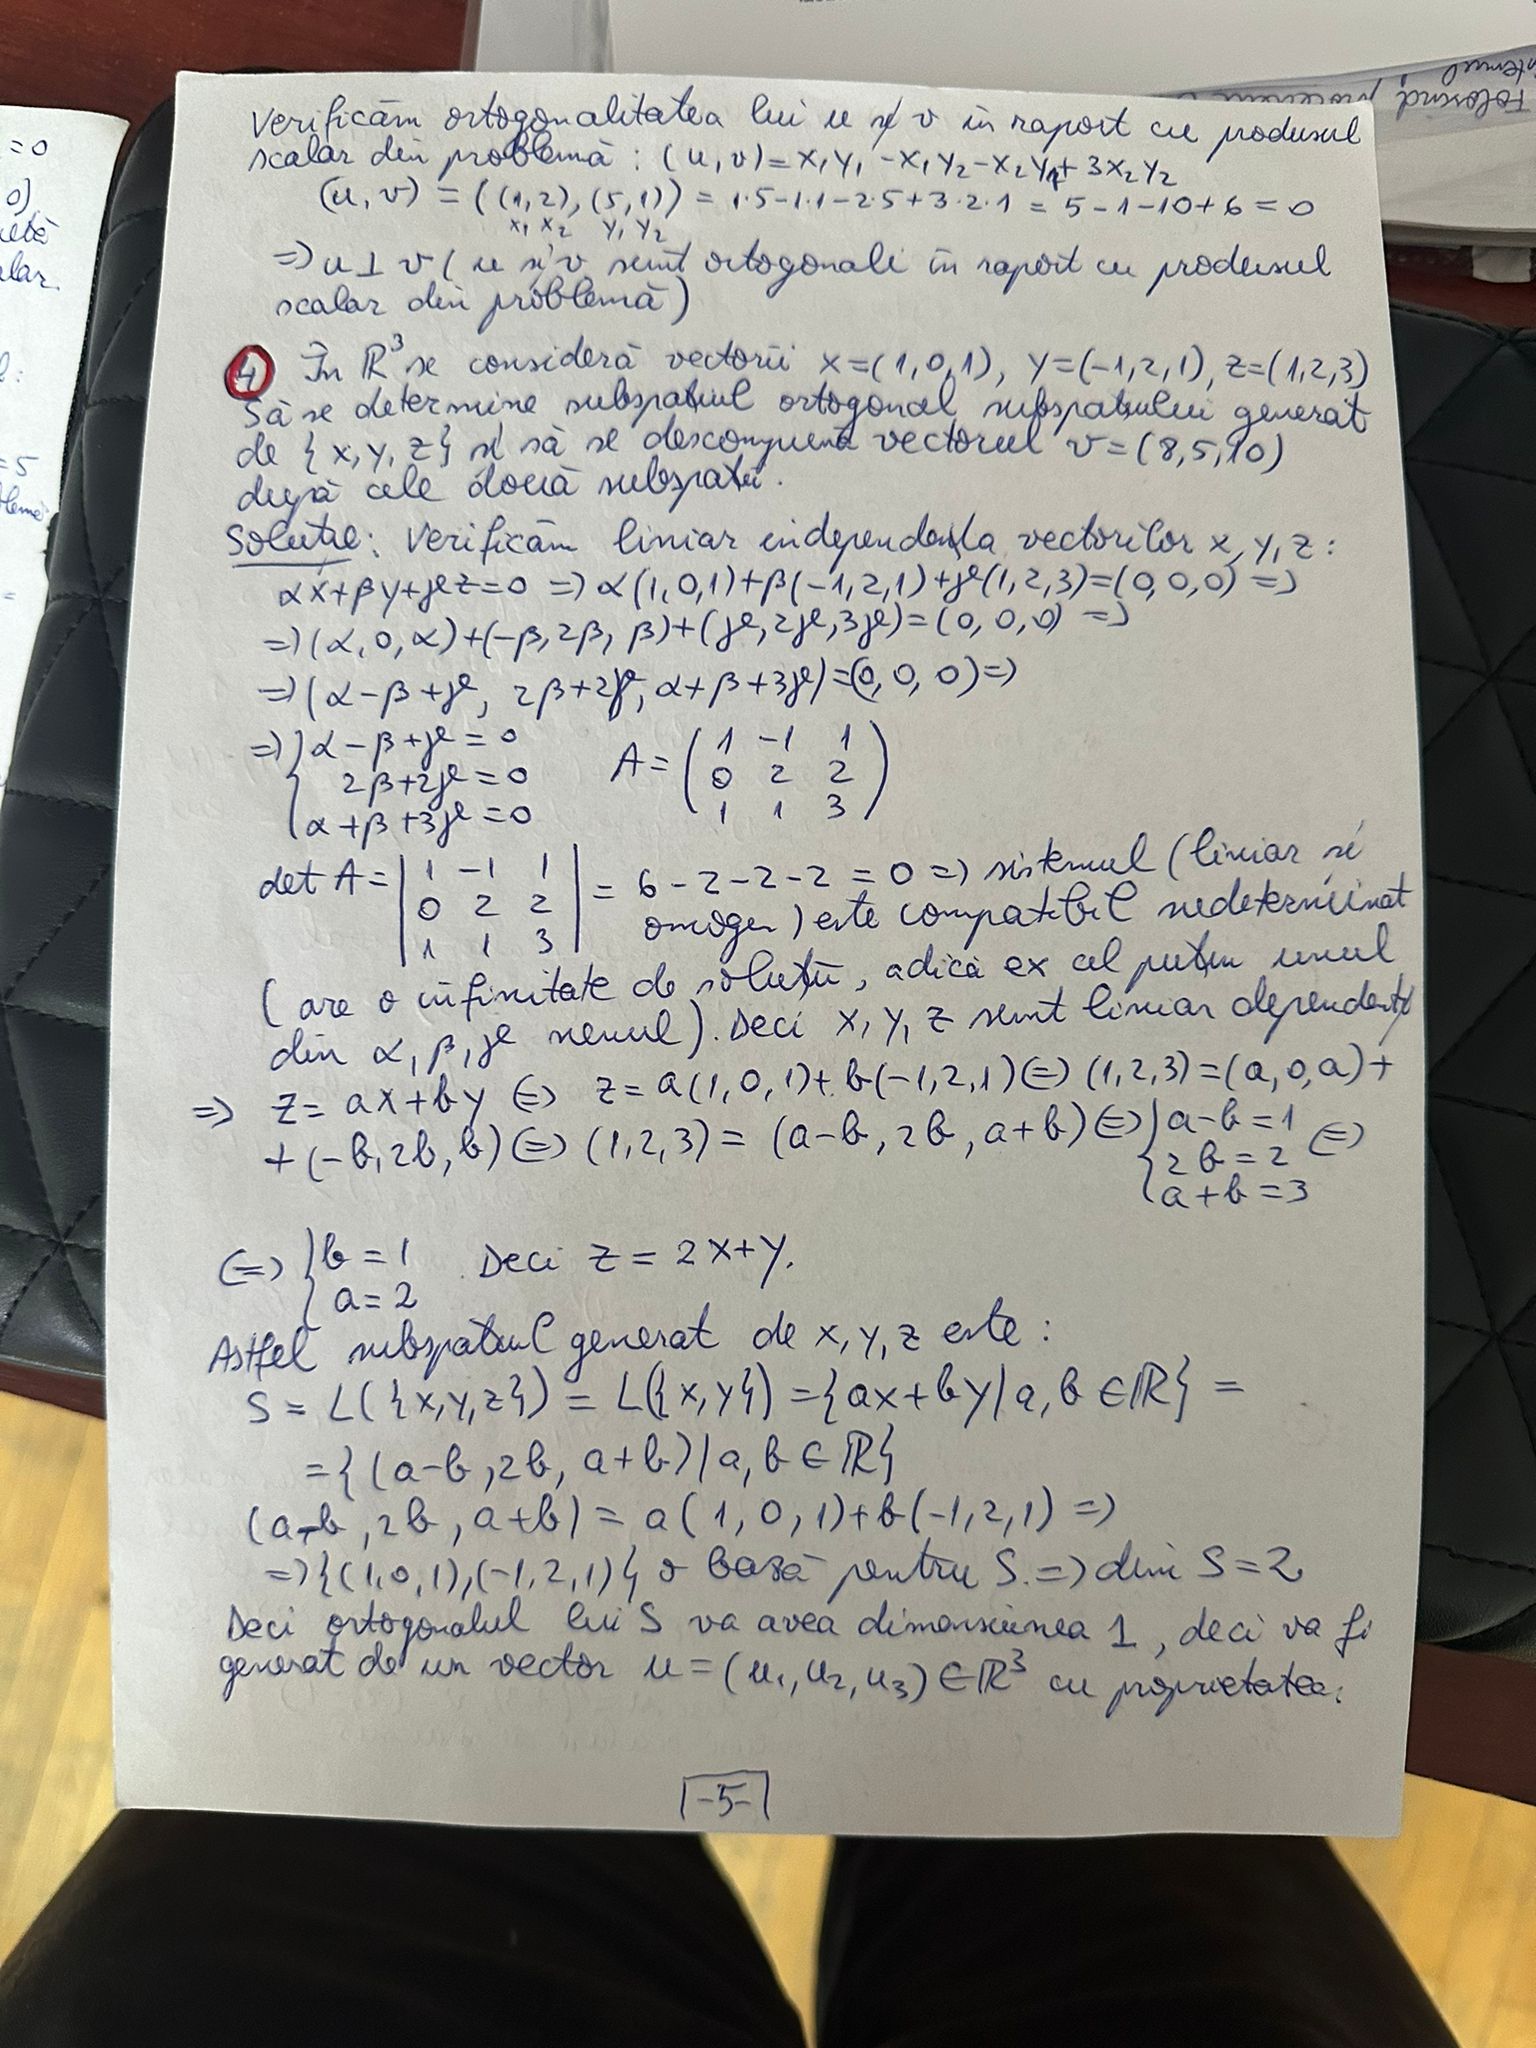 Verificăm ortogonalitatea lui u și v în raport cu produsul
scalar din problemă : (u,v)=x₁y₁-x₁y₂-x₂y₁+3x₂y₂
(u,v) = ((1,2),(5,1)) = 1·5-1·1-2·5+3·2·1 = 5-1-10+6=0
x₁ x₂ y₁ y₂
=> u⊥v (u și v sunt ortogonali în raport cu produsul
scalar din problemă)
4 În ℝ³ se consideră vectorii x=(1,0,1), y=(-1,2,1), z=(1,2,3)
Să se determine subspațiul ortogonal subspațiului generat
de {x,y,z} și să se descompună vectorul v=(8,5,10)
după cele două subspații.
Soluție: Verificăm liniar independența vectorilor x,y,z:
αx+βy+γz=0 => α(1,0,1)+β(-1,2,1)+γ(1,2,3)=(0,0,0) =>
=> (α,0,α)+(-β,2β,β)+(γ,2γ,3γ)=(0,0,0) =>
=> (α-β+γ, 2β+2γ, α+β+3γ)=(0,0,0) =>
=> { α-β+γ=0 A= ( 1 -1 1
2β+2γ=0 0 2 2
α+β+3γ=0 1 1 3 )
det A= | 1 -1 1 | = 6-2-2-2=0 => sistemul (liniar și
0 2 2 omogen) este compatibil nedeterminat
1 1 3
(are o infinitate de soluții, adică ex cel puțin unul
din α,β,γ nenul). Deci x,y,z sunt liniar dependenți
=> z=ax+by <=> z=a(1,0,1)+b(-1,2,1) <=> (1,2,3)=(a,0,a)+
+(-b,2b,b) <=> (1,2,3)=(a-b,2b,a+b) <=> { a-b=1
2b=2 <=>
a+b=3
<=> { b=1 Deci z=2x+y.
a=2
Astfel subspațiul generat de x,y,z este:
S=L({x,y,z})=L({x,y})={ax+by|a,b∈ℝ}=
={(a-b,2b,a+b)|a,b∈ℝ}
(a-b,2b,a+b)=a(1,0,1)+b(-1,2,1) =>
=> {(1,0,1),(-1,2,1)} o bază pentru S. => dim S=2
Deci ortogonalul lui S va avea dimensiunea 1, deci va fi
generat de un vector u=(u₁,u₂,u₃)∈ℝ³ cu proprietatea:
-5-